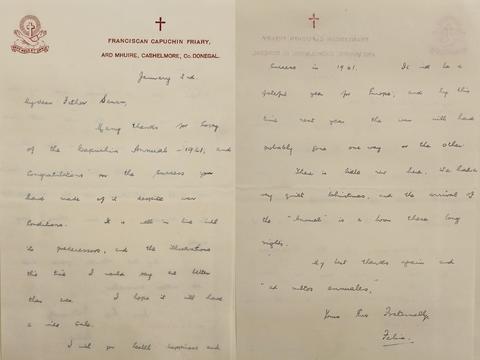 FRANCISCAN CAPUCHIN FRIARY,
ARD MHUIRE, CASHELMORE, Co. DONEGAL.
January 2nd.
My dear Father Senan,
Many thanks for copy
of the Capuchin Annual - 1941, and
congratulations on the success you
have made of it despite war
conditions. It is well in line with
its predecessors, and the illustrations
this time I would say are better
than ever. I hope it will have
a wide sale.
I wish you health, happiness and
success in 1941. It will be a
fateful year for Europe; and by this
time next year the war will have
probably gone one way or the other.
There is little news here. We had a
very quiet Christmas, and the arrival of
the "Annual" is a boon these long
nights.
My best thanks again and
"ad multos annuales."
Yours very fraternally,